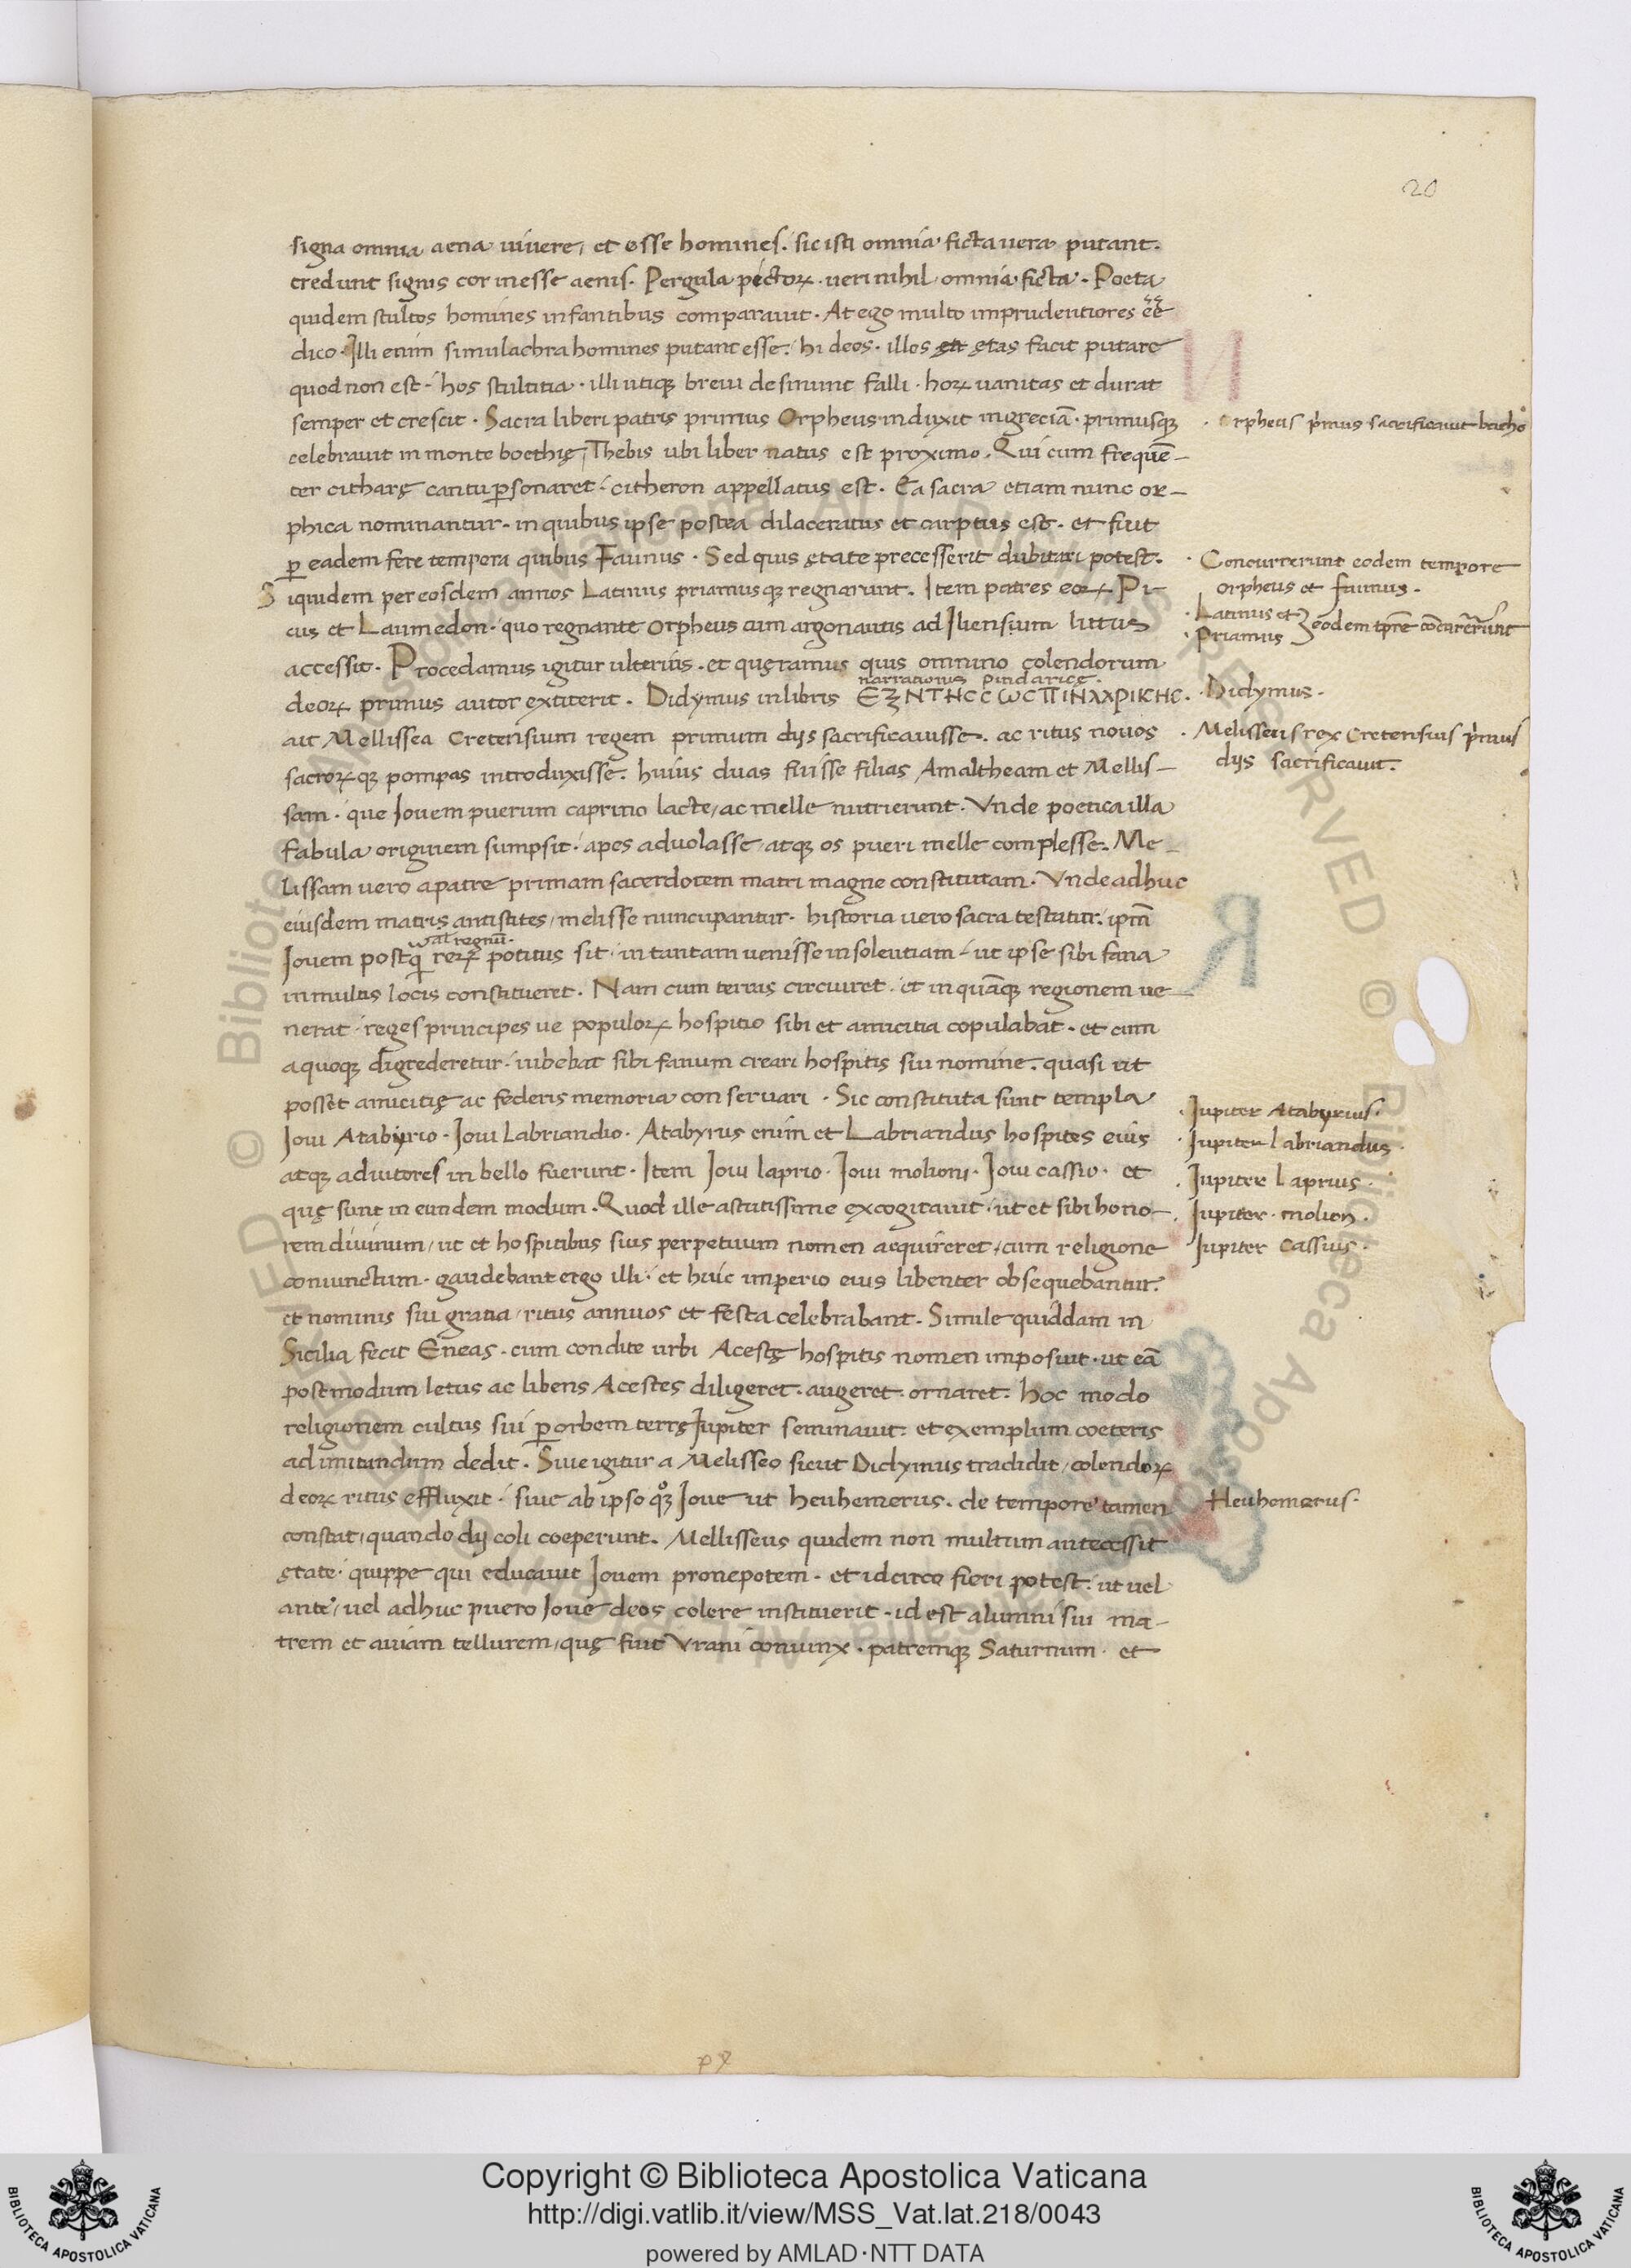 20
signa omnia aena vivere, et esse homines. sic isti omnia ficta vera putant.
credunt signis cor inesse aenis. Pergula pictoꝝ. veri nihil omnia ficta. Poeta
quidem stultos homines infantibus comparavit. At ego multo imprudentiores eē
dico. Illi enim simulachra homines putant esse. hi deos. illos ęt ętas facit putare
quod non est. hos stultitia. illi utiqꝫ brevi desinunt falli. hoꝝ vanitas et durat
semper et crescit. Sacra liberi patris primus Orpheus induxit in greciā. primusqꝫ
celebravit in monte boethię, Thebis ubi liber natus est proximo. Qui cum frequē-
ter citharę cantu ꝑsonaret. citheron appellatus est. Ea sacra etiam nunc or-
phica nominantur. in quibus ipse postea dilaceratus et carptus est. et fuit
ꝑ eadem fere tempora quibus Faunus. Sed quis ętate precesserit dubitari potest.
Siquidem per eosdem annos Latinus priamusqꝫ regnarunt. Item patres eoꝝ Pi-
cus et Laumedon. quo regnante Orpheus cum argonautis ad Iliensium littus
accessit. Procedamus igitur ulterius. et quęramus quis omnino colendorum
narrationis pindaricę.
deoꝝ primus autor extiterit. Didymus in libris ΕΞΝΤΗϹϹωϹΠΙΝλλΡΙΚΗϹ.
ait Mellissea Cretensium regem primum dijs sacrificavisse. ac ritus novos
sacroꝝqꝫ pompas introduxisse. huius duas fuisse filias Amaltheam et Mellis-
sam. que Jovem puerum caprino lacte, ac melle nutrierunt. Unde poetica illa
fabula originem sumpsit. apes advolasse, atqꝫ os pueri melle complesse. Me-
lissam vero a patre primam sacerdotem matri magne constitutam. Unde adhuc
eiusdem matris antistites, melisse nuncupantur. historia vero sacra testatur. ipm̄
val regnū.
Jovem postq̄ reꝝ potitus sit. in tantam venisse insolentiam. ut ipse sibi fana
in multis locis constitueret. Nam cum terras circuiret. et in quāqꝫ regionem ve-
nerat. reges principes ve populoꝝ hospitio sibi et amicitia copulabat. et cum
a quoqꝫ digrederetur. iubebat sibi fanum creari hospitis sui nomine. quasi ut
posset amicitię ac federis memoria conservari. Sic constituta sunt templa
Jovi Atabyrio. Jovi Labriandio. Atabyrus enim et Labriandus hospites eius
atqꝫ adiutores in bello fuerunt. Item Jovi laprio. Jovi molioni. Jovi cassio. et
quę sunt in eundem modum. Quod ille astutissime excogitavit. ut et sibi hono-
rem divinum, ut et hospitibus suis perpetuum nomen acquireret, cum religione
coniunctum. gaudebant ergo illi. et huic imperio eius libenter obsequebantur.
et nominis sui gratia, ritus annuos et festa celebrabant. Simile quiddam in
Sicilia fecit Eneas. cum condite urbi Acestę hospitis nomen imposuit. ut eā
postmodum letus ac libens Acestes diligeret. augeret. ornaret. hoc modo
religionem cultus sui ꝑ orbem terrę Jupiter seminavit. et exemplum coeteris
ad imitandum dedit. Sive igitur a Melisseo sicut Didymus tradidit, colendoꝝ
deoꝝ ritus effluxit. sive ab ipso qꝫ Jove ut heuhemerus. de tempore tamen
constat, quando dij coli coeperunt. Mellisseus quidem non multum antecessit
ętate. quippe qui educavit Jovem pronepotem. et idcirco fieri potest. ut vel
ante, vel adhuc puero Jove deos colere instituerit. id est alumni sui ma-
trem et aviam tellurem, quę fuit Urani coniunx. patremqꝫ Saturnum. et
Orpheus p̄mus sacrificavit bacho
Concurrerunt eodem tempore
orpheus et faunus.
Latinus et
Priamus
eodem tp̄re
Didymus.
Melisseus rex Cretensius p̄mus
dijs sacrificavit.
Jupiter Atabyrius.
Jupiter labriandus.
Jupiter laprius.
Jupiter. molion.
Jupiter Cassius.
Heuhemerus.
N
R
Copyright © Biblioteca Apostolica Vaticana
http://digi.vatlib.it/view/MSS_Vat.lat.218/0043
powered by AMLAD·NTT DATA
BIBLIOTECA APOSTOLICA VATICANA
BIBLIOTECA APOSTOLICA VATICANA